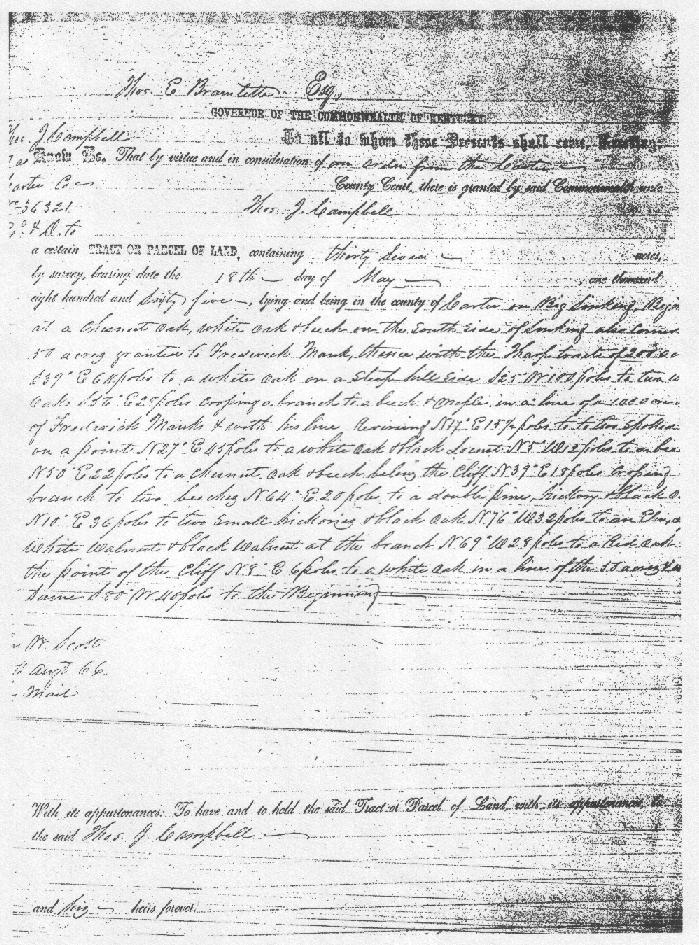 Thos. E Bramlette Esq.,
GOVERNOR OF THE COMMONWEALTH OF KENTUCKY
Thos. J Campbell
To all to whom these Presents shall come, Greeting:
Know Ye, That by virtue and in consideration of an order from the Carter
County Court, there is granted by said Commonwealth unto
36321
Thos. J. Campbell
a certain TRACT OR PARCEL OF LAND, containing thirty seven acres,
by survey, bearing date the 18th day of May one thousand
eight hundred and sixty five, lying and being in the county of Carter on Big Sinking,
at a chesnut oak, white oak & beech on the South side of Sinking also corner
50 acres granted to Frederick Mank, thence with the Tharp tracts of 200
S39° E 68 poles to a white oak on a Steep hill side S25 W 102 poles to two
oaks E 29 poles crossing a branch to a beech & maple in a line of a 1000
of Frederick Manks & with his line, reversing E 157 poles to two
on a point N27° E 45 poles to a white oak & black Locust N5° W 12 poles to a
N50° E 22 poles to a chesnut oak & beech below the cliff N39° E 15 poles crossing
branch to two beeches N64° E 20 poles to a double pine, hickory & black
N10° E 36 poles to two small hickories & black oak N76° W 32 poles to an Elm,
White Walnut & black Walnut at the branch N69° W 28 poles to a Red oak
the points of the cliff N3 E 6 poles to a white oak in a line of the 50 acres
Same S80 W 40 poles to the Beginning
W. Scott
Augt 66
Mail
With its appurtenances: To have and to hold the said Tract or Parcel of Land, with its appurtenances, to
the said Thos J Campbell
and his heirs forever.